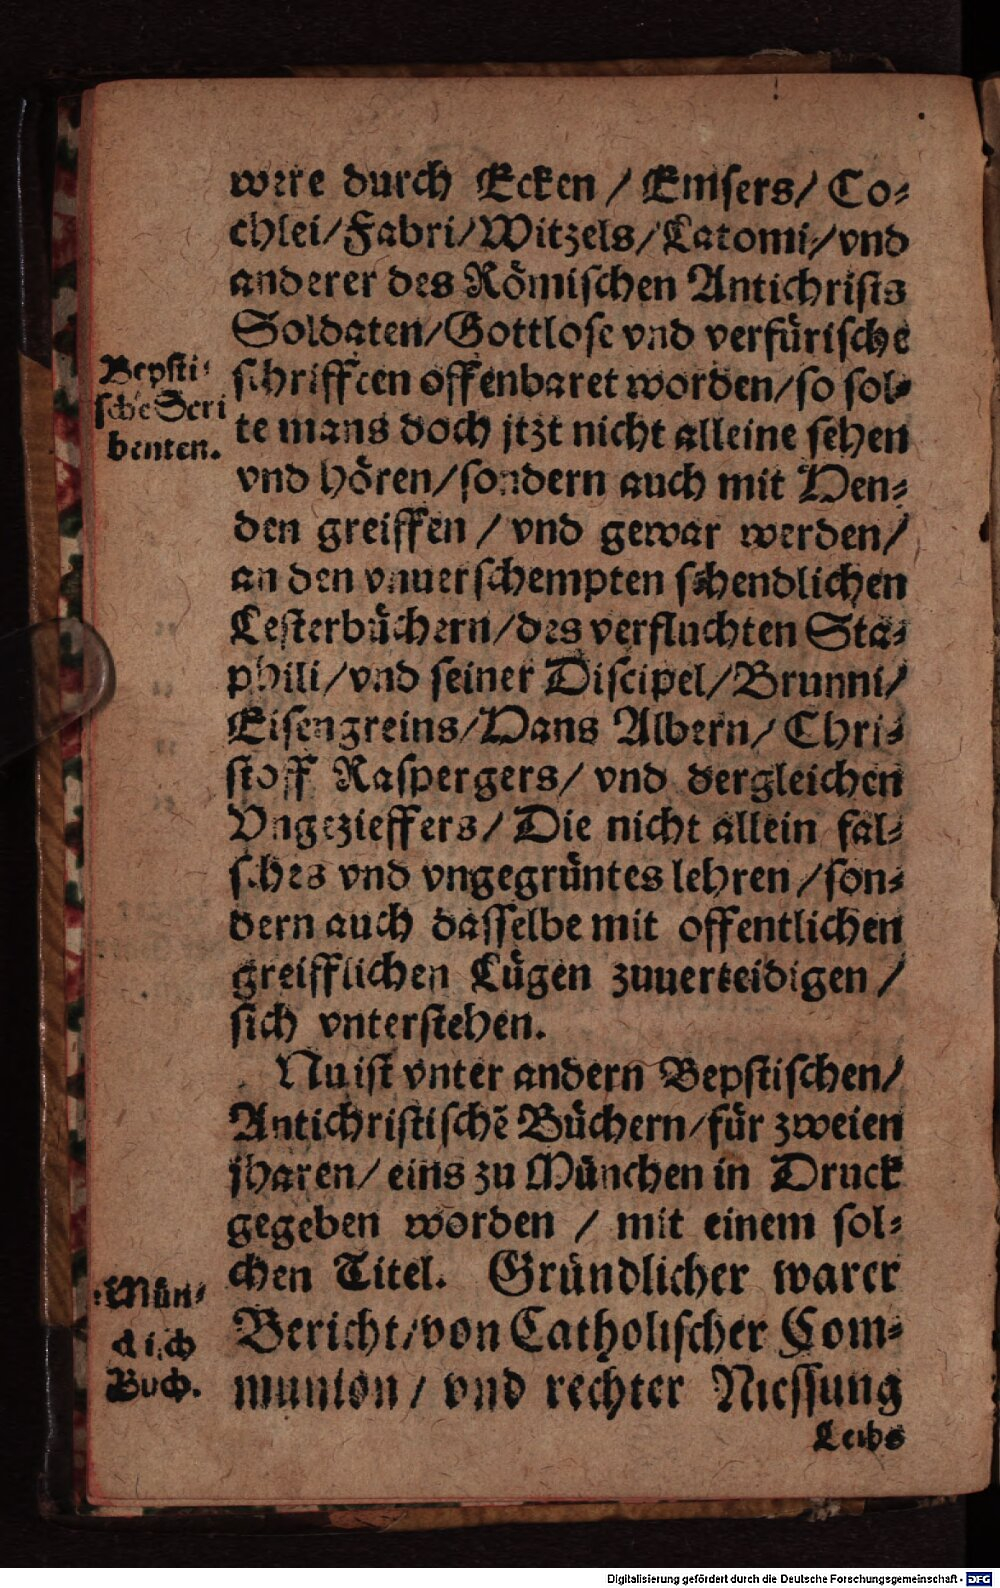 were durch Ecken / Emsers / Co⸗
chlei / Fabri / Witzels / Latomi / vnd
anderer des Römischen Antichrists
Soldaten / Gottlose vnd verfürische
schrifften offenbaret worden / so sol⸗
te mans doch jtzt nicht alleine sehen
vnd hören / sondern auch mit Hen⸗
den greiffen / vnd gewar werden /
an den vnuerschempten schendlichen
Lesterbüchern / des verfluchten Sta⸗
phili / vnd seiner Discipel / Brunni /
Eisengreins / Hans Albern / Chri⸗
stoff Raspergers / vnd dergleichen
Vngezieffers / Die nicht allein fal⸗
sches vnd vngegrüntes lehren / son⸗
dern auch dasselbe mit offentlichen
greifflichen Lügen zuuerteidigen /
sich vnterstehen.
Nu ist vnter andern Bepstischen /
Antichristischẽ Büchern / für zweien
jharen / eins zu München in Druck
gegeben worden / mit einem sol⸗
chen Titel. Gründlicher warer
Bericht / von Catholischer Com⸗
munion / vnd rechter Niessung
Leibs
Bepsti⸗
sche Scri
benten.
Mün⸗
chisch
Buch.
Digitalisierung gefördert durch die Deutsche Forschungsgemeinschaft - DFG